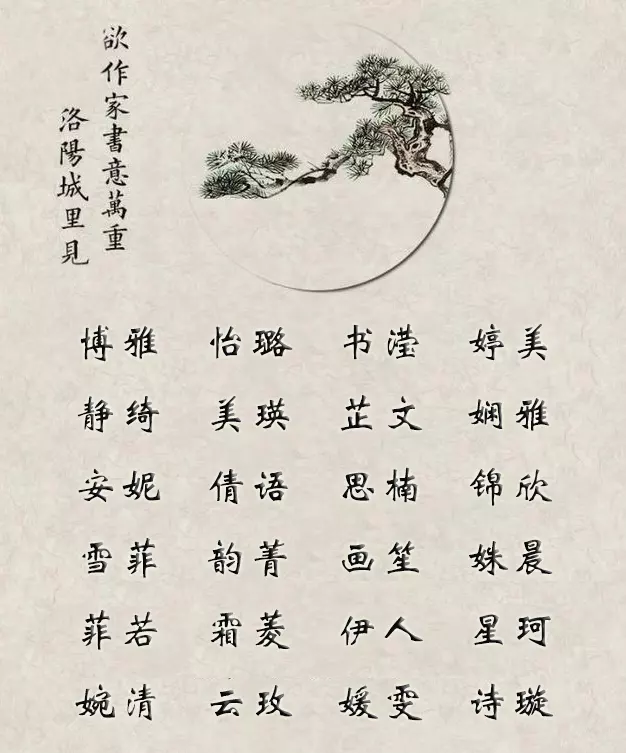 欲作家書意萬重
洛陽城里見
博雅 怡璐 书滢 婷美
静绮 美瑛 芷文 娴雅
安妮 倩语 思楠 锦欣
雪菲 韵菁 画笙 姝晨
菲若 霜菱 伊人 星珂
婉清 云玫 媛雯 诗璇